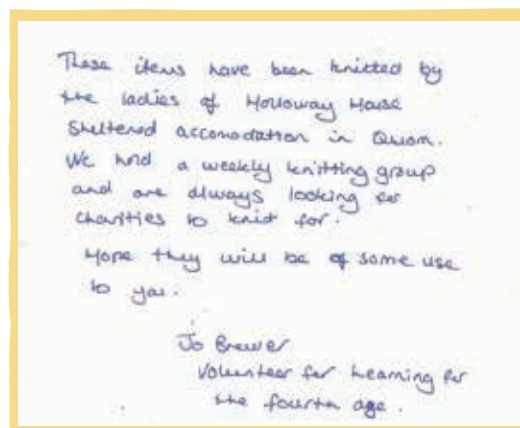 These items have been knitted by
the ladies of Holloway House
Sheltered accomodation in Quorn.
We hold a weekly knitting group
and are always looking for
charities to knit for.
Hope they will be of some use
to you.
Jo Brewer
Volunteer for Learning for
the fourth age.